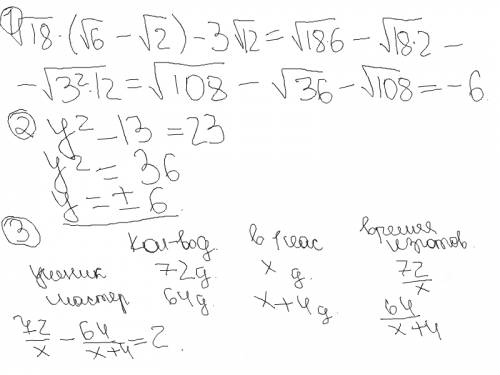 ① √18 · (√6 − √2) − 3√12 = √18·6 − √18·2 −
− √3²·12 = √108 − √36 − √108 = −6.
② y² − 13 = 23
y² = 36
y = ± 6
③ Кол-во д. в 1 час время изготов.
ученик 72 д. x д. 72/x
мастер 64 д. x+4 д. 64/(x+4)
72/x − 64/(x+4) = 2.